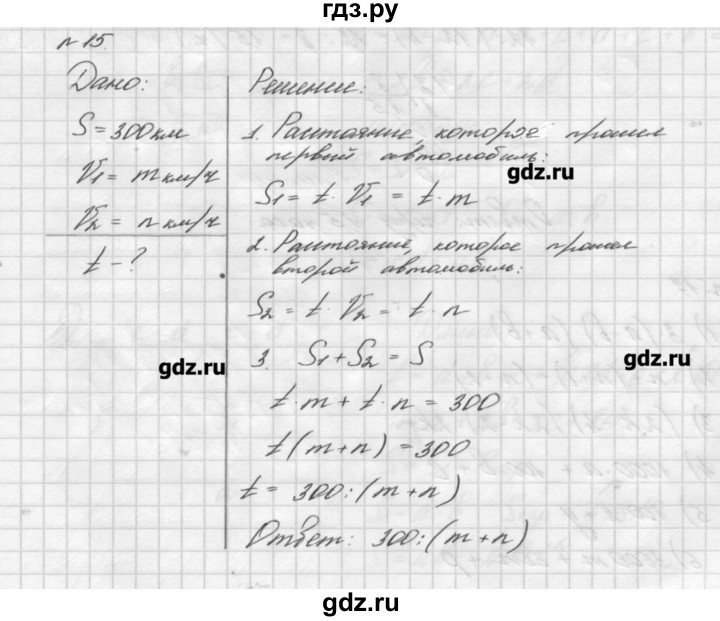 гдз.ру
№ 15.
Дано:
S = 300 км
V1 = m км/ч
V2 = n км/ч
t - ?
Решение:
1. Расстояние, которое прошел
первый автомобиль:
gdz.ru
S1 = t · V1 = t · m
2. Расстояние, которое прошел
второй автомобиль:
S2 = t · V2 = t · n
gdz.ru
3. S1 + S2 = S
gdz.ru
t · m + t · n = 300
t (m + n) = 300
t = 300 : (m + n)
Ответ: 300 : (m + n)
gdz.ru